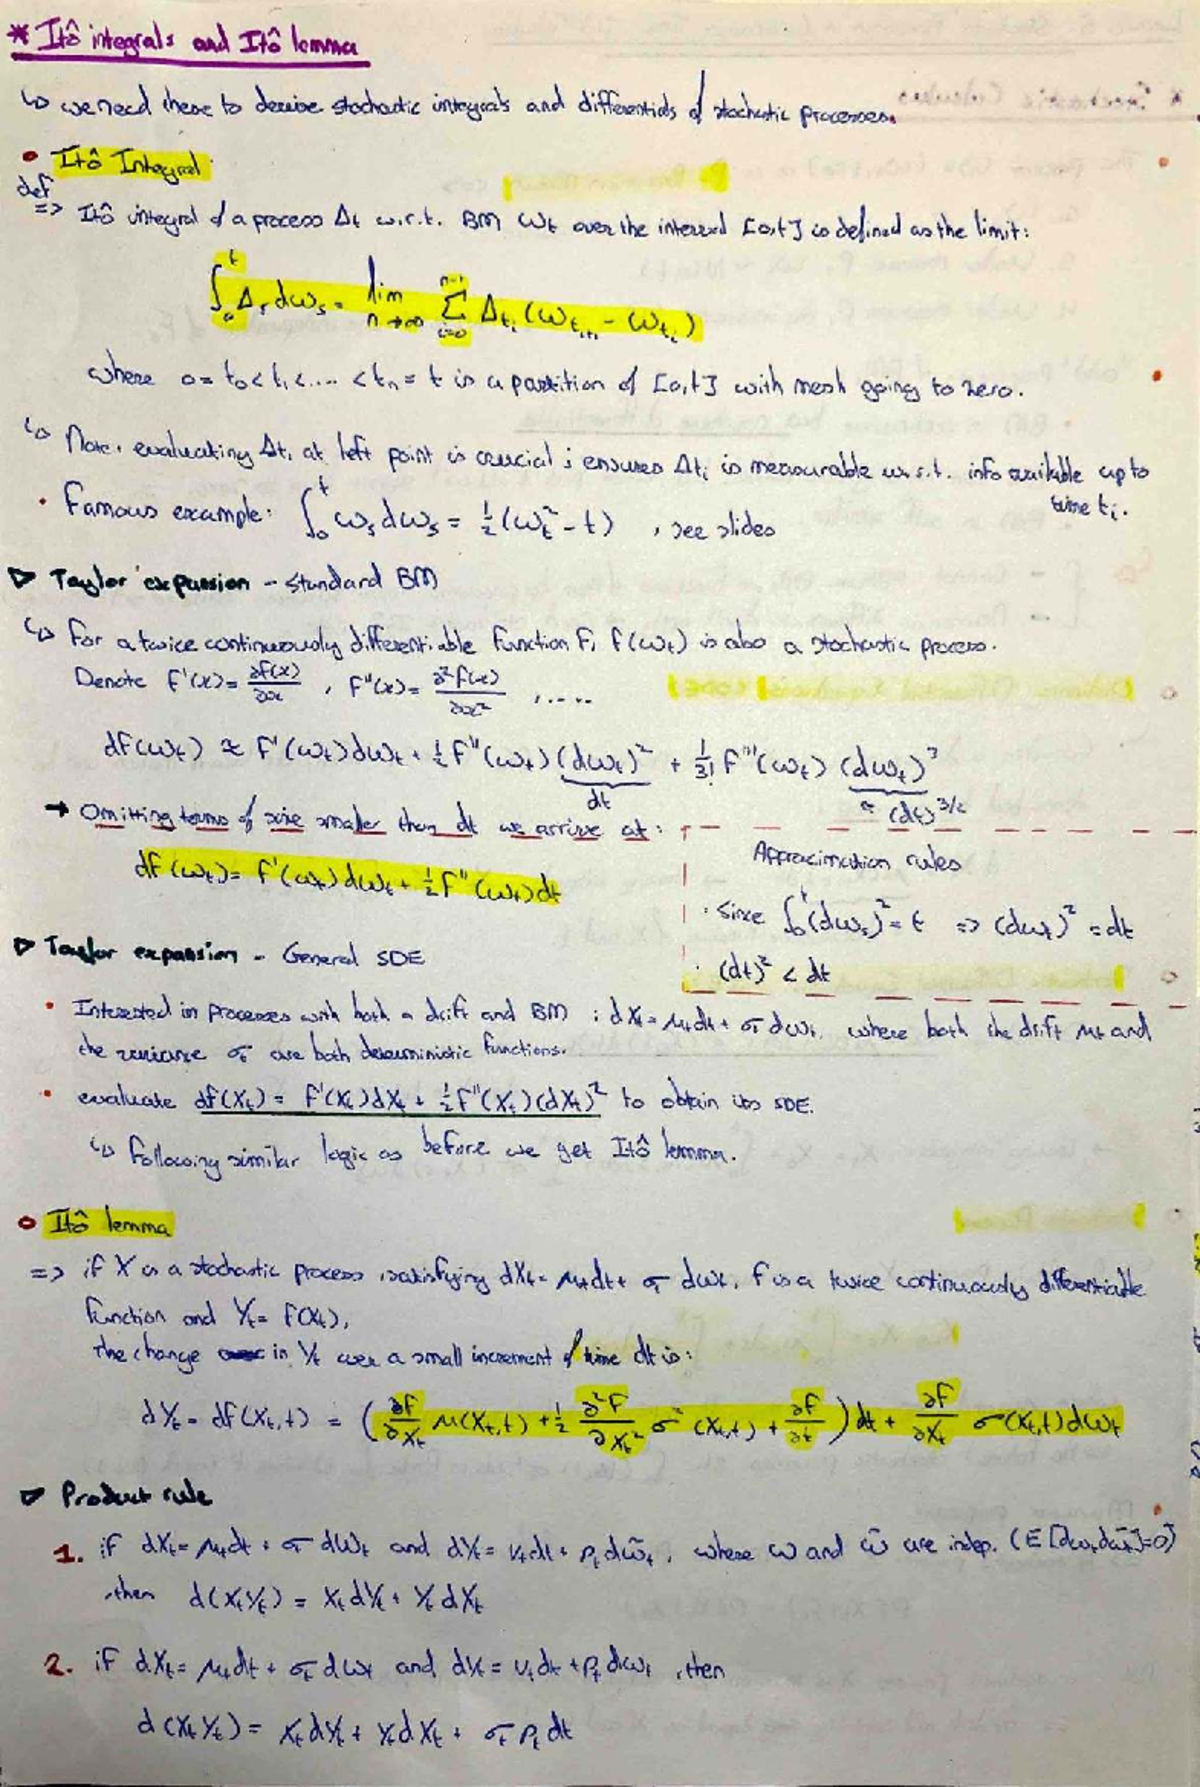 * Itô integrals and Itô lemma
↳ we need these to derive stochastic integrals and differentials of stochastic processes.
• Itô Integral
def
=> Itô integral of a process Δt w.r.t. BM Wt over the interval [0,t] is defined as the limit:
∫₀ᵗ Δs dWs = lim n→∞ Σ i=0 n-1 Δti (Wti+1 - Wti)
where 0 = t0 < t1 < .... < tn = t is a partition of [0,t] with mesh going to zero.
↳ Note: evaluating Δti at left point is crucial; ensures Δti is measurable w.r.t. info available up to
time ti.
• Famous example: ∫₀ᵗ Ws dWs = ½(Wt² - t) , see slides
▷ Taylor expansion - standard BM
↳ For a twice continuously differentiable function F, f(Wt) is also a stochastic process.
Denote F'(x) = ∂f(x)/∂x , F''(x) = ∂²f(x)/∂x² , .....
dF(Wt) ≈ F'(Wt)dWt + ½F''(Wt)(dWt)² + 1/3! F'''(Wt)(dWt)³
dt
≈ (dt)^3/2
→ Omitting terms of size smaller than dt we arrive at:
df(Wt) = f'(Wt)dWt + ½f''(Wt)dt
Approximation rules
· since ∫₀ᵗ(dWs)² = t => (dWt)² = dt
· (dt)² < dt
▷ Taylor expansion - General SDE
• Interested in processes with both a drift and BM : dXt = μtdt + σt dWt, where both the drift μt and
the variance σt are both deterministic functions.
• evaluate df(Xt) = F'(Xt)dXt + ½F''(Xt)(dXt)² to obtain its SDE.
↳ Following similar logic as before we get Itô lemma.
o Itô lemma
=> if X is a stochastic process satisfying dXt = μtdt + σt dWt, F is a twice continuously differentiable
function and Yt = f(Xt),
the change in Yt over a small increment of time dt is:
dYt = df(Xt,t) = (∂F/∂Xt μ(Xt,t) + ½ ∂²F/∂Xt² σ²(Xt,t) + ∂F/∂t)dt + ∂F/∂Xt σ(Xt,t)dWt
▷ Product rule
1. if dXt = μtdt + σt dWt and dYt = νtdt + ρt dW̃t, where W and W̃ are indep. (E[dWtdW̃t]=0)
,then d(XtYt) = XtdYt + YtdXt
2. if dXt = μtdt + σt dWt and dYt = νtdt + ρt dWt ,then
d(XtYt) = XtdYt + YtdXt + σt ρt dt